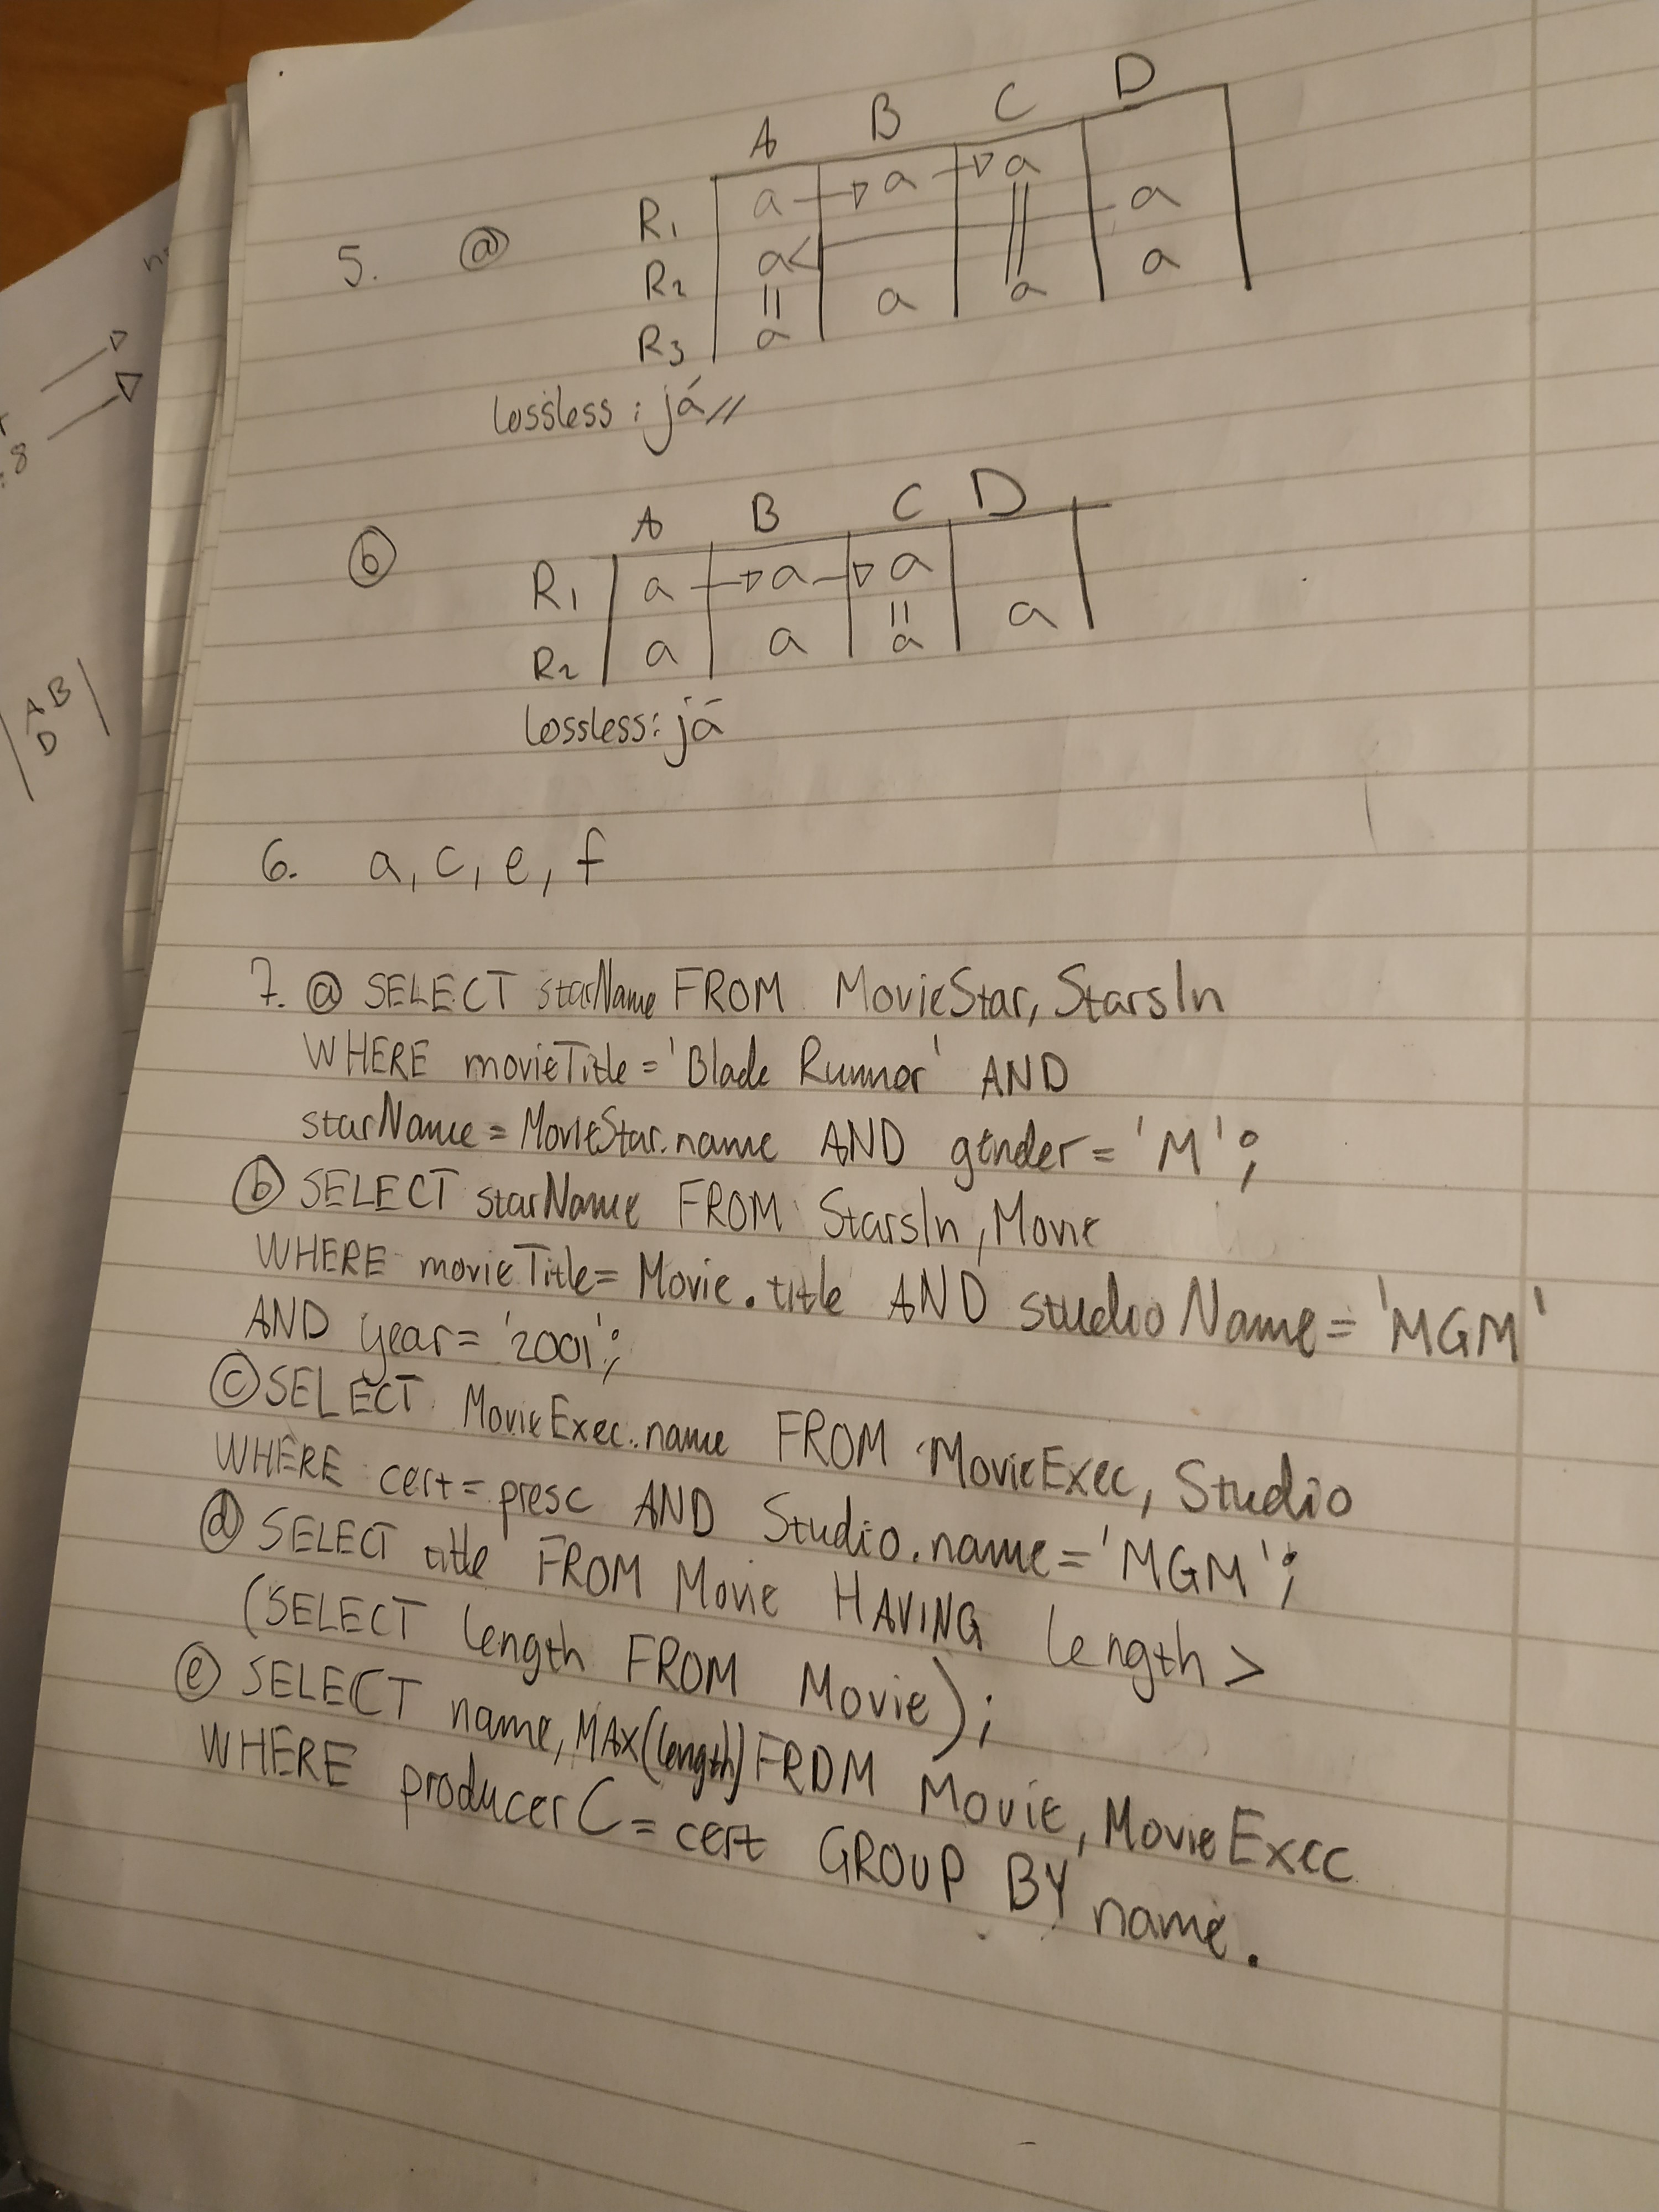 A B C D
5. ⓐ R1 a → a → a
R2 a < a
R3 a a a a
lossless: já //
ⓑ A B C D
R1 a → a → a
R2 a a a a
lossless: já
6. a, c, e, f
7. ⓐ SELECT starName FROM MovieStar, StarsIn
WHERE movieTitle = 'Blade Runner' AND
starName = MovieStar.name AND gender = 'M';
ⓑ SELECT starName FROM StarsIn, Movie
WHERE movieTitle = Movie.title AND studioName = 'MGM'
AND year = '2001';
ⓒ SELECT MovieExec.name FROM MovieExec, Studio
WHERE cert = presc AND Studio.name = 'MGM';
ⓓ SELECT title FROM Movie HAVING length >
(SELECT length FROM Movie);
ⓔ SELECT name, MAX(length) FROM Movie, MovieExec
WHERE producerC = cert GROUP BY name.
AB
D
8